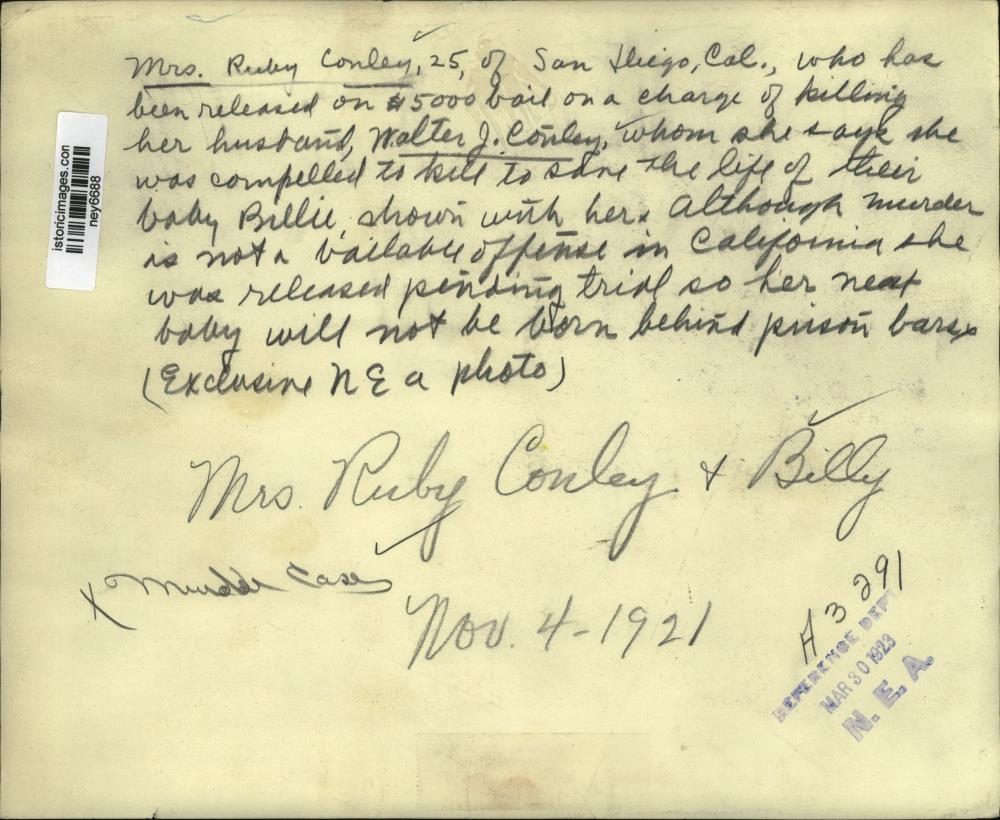 Mrs. Ruby Conley, 25, of San Diego, Cal., who has
been released on $5000 bail on a charge of killing
her husband, Walter J. Conley, whom she says she
was compelled to kill to save the life of their
baby Billie, shown with her. Although murder
is not a bailable offense in California she
was released pending trial so her next
baby will not be born behind prison bars.
(Exclusive NEA photo)
Mrs. Ruby Conley + Billy
X Murder Cases
Nov. 4-1921
A3291
REFERENCE DEPT
MAR 30 1923
N. E. A.
istoricimages.com
ney6688